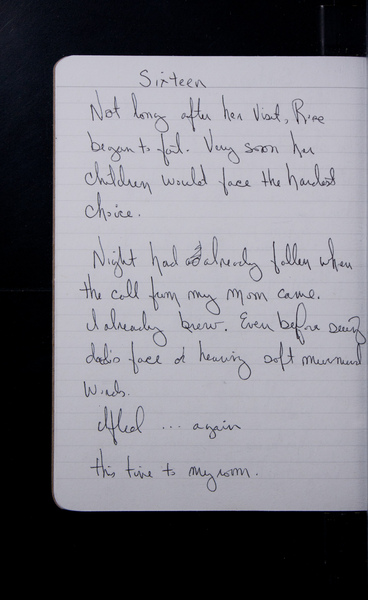 Sixteen
Not long after her visit,
began to fail. Very soon her
children would face the hardest
choice.
Night had already fallen when
the call from my mom came.
I already knew. Even before seeing
dad's face or hearing soft murmured
words.
I fled ... again
this time to my room.